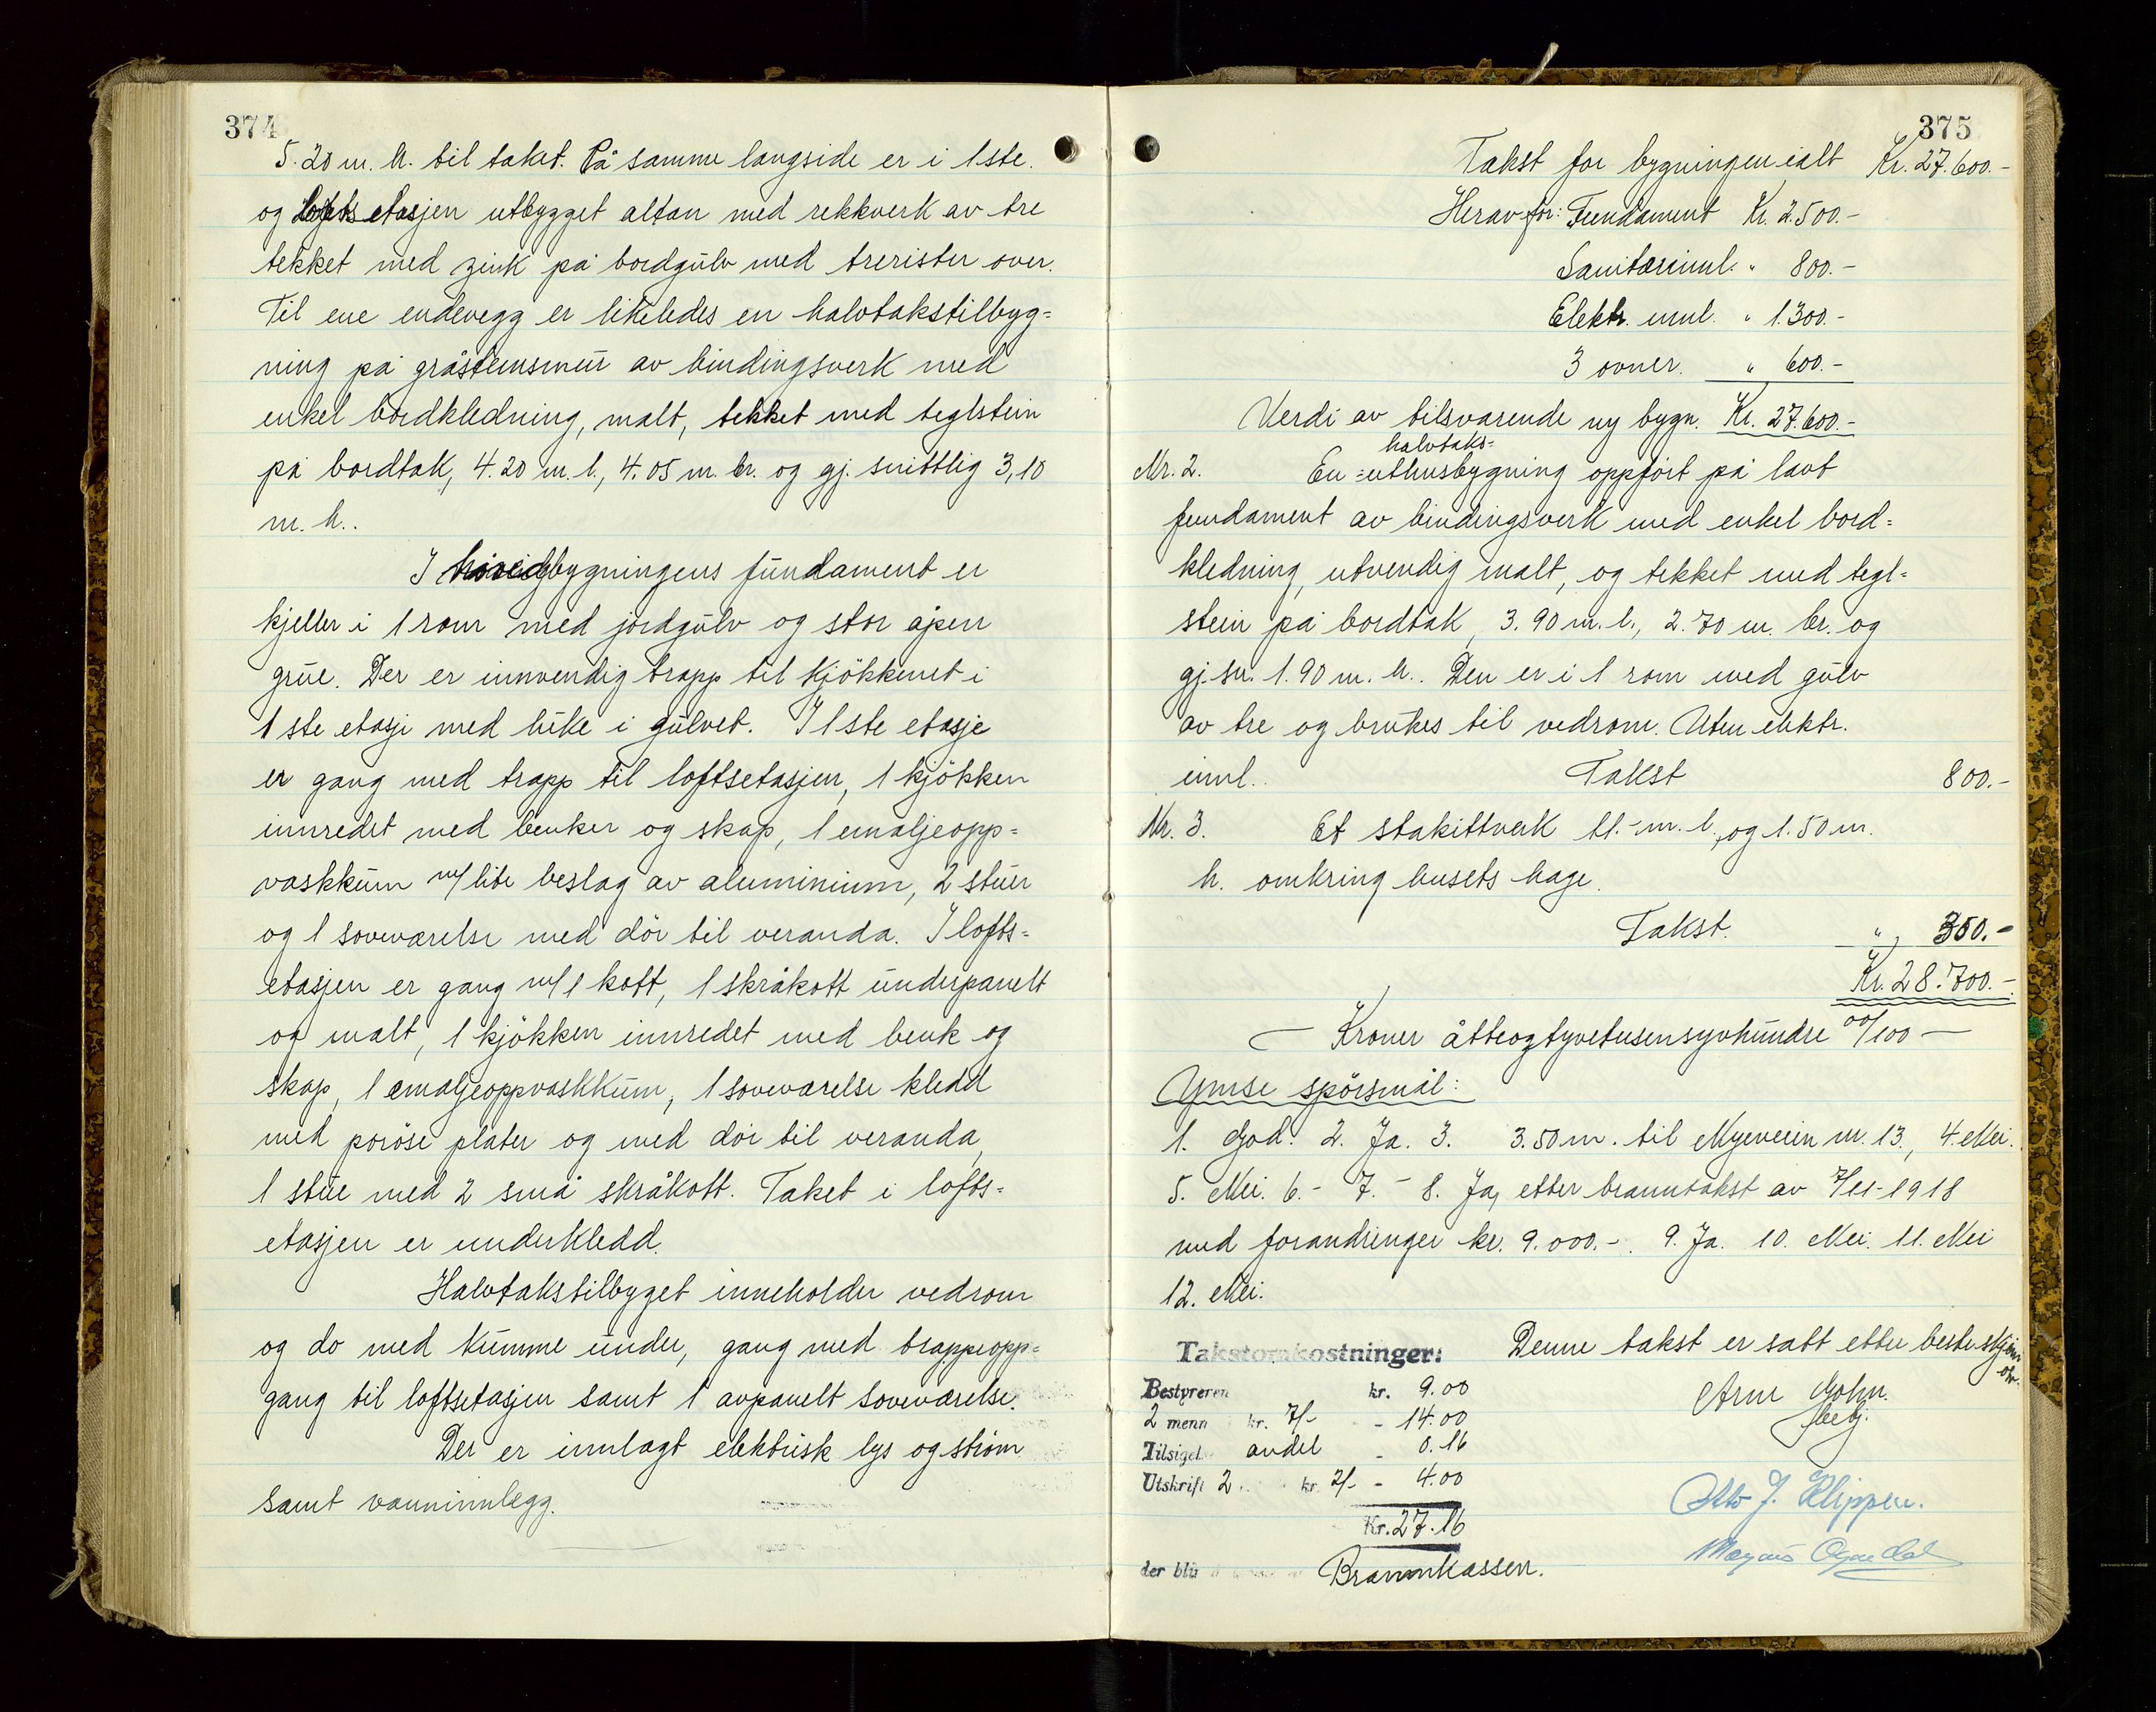 374
5.20 m. h. til taket. På samme langside er i 1ste.
og lofts etasjen utbygget altan med rekkverk av tre
tekket med zink på bordgulv med trerister over.
Til ene endevegg er likeledes en halvtakstilbyg=
ning på gråsteinsmur av bindingsverk med
enkel bordkledning, malt, tekket med teglstein
på bordtak, 4.20 m. l., 4.05 m. br. og gj. snittlig 3,10
m. h..
I hovedbygningens fundament er
kjeller i 1 rom med jordgulv og stor åpen
grue. Der er innvendig trapp til kjökkenet i
1ste etasje med luke i gulvet. I 1ste etasje
er gang med trapp til loftsetasjen, 1 kjökken
innredet med benker og skap, 1 emaljeopp=
vaskkum m/ lite beslag av aluminium, 2 stuer
og 1 soveværelse med dör til veranda. I lofts=
etasjen er gang m/ 1 kott, 1 skråkott underpanelt
og malt, 1 kjökken innredet med benk og
skap, 1 emaljeoppvaskkum, 1 soveværelse kledd
med poröse plater og med dör til veranda,
1 stue med 2 små skråkott. Taket i lofts=
etasjen er underkledd.
Halvtakstilbyget inneholder vedrom
og do med kumme under, gang med trappeopp=
gang til loftsetasjen samt 1 avpanelt soveværelse.
Der er innlagt elektrisk lys og ström
samt vanninnlegg.
375
Takst for bygningen ialt Kr. 27.600.-
Herav for: Fundament Kr. 2.500.-
Sanitærinnl. " 800.-
Elektr. innl. " 1.300.-
3 ovner. " 600.-
Verdi av tilsvarende ny bygn. Kr. 27.600.-
halvtaks=
Nr. 2. En =uthusbygning oppfört på lavt
fundament av bindingsverk med enkel bord=
kledning, utvendig malt, og tekket med tegl=
stein på bordtak, 3.90 m. l., 2.70 m. br. og
gj. sn. 1.90 m. h.. Den er i 1 rom med gulv
av tre og brukes til vedrom. Uten elektr.
innl.. Takst 800.-
Nr. 3. Et stakittverk 11.- m. l., og 1.50 m.
h. omkring husets hage.
Takst. " 350.-
Kr. 28.700.-
— Kroner åtteogtyvetusensyvhundre 00/100 —
Ymse spörsmål:
1. God. 2. Ja. 3. 3.50 m. til Myeveien nr. 13., 4. Nei.
5. Nei. 6. - 7. - 8. Ja, etter branntakst av 7/11-1918
med forandringer kr. 9.000.-. 9. Ja. 10. Nei. 11. Nei
12. Nei.
Takstomkostninger: Denne takst er satt etter beste skjönn
Bestyreren kr. 9.00
2 menn kr. 7/- - 14.00
Tilsigelse andel - 0.16
Utskrift 2 kr. 2/- - 4.00
Kr. 27.16
der blir Brannkassen.
Arne
Otto J. Klippen.
Magnus